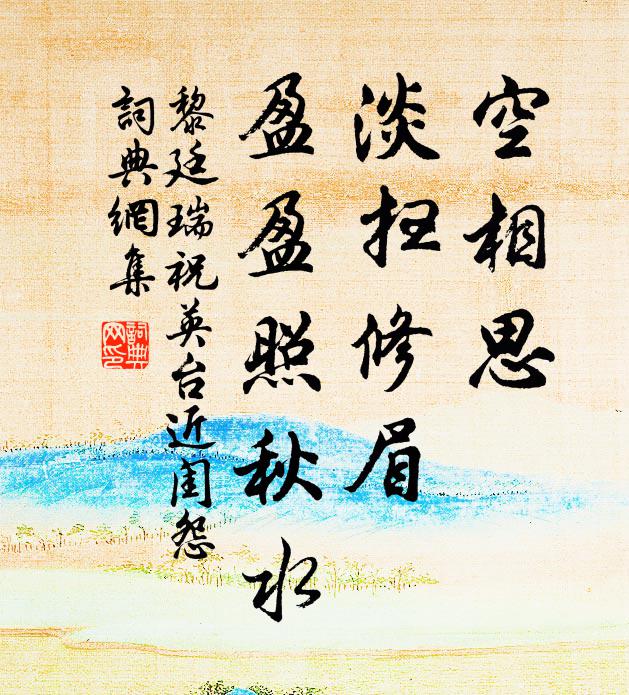 空相思
淡扫修眉
盈盈照秋水
黎廷瑞祝英台近闺怨
詞典網集
詞典网印